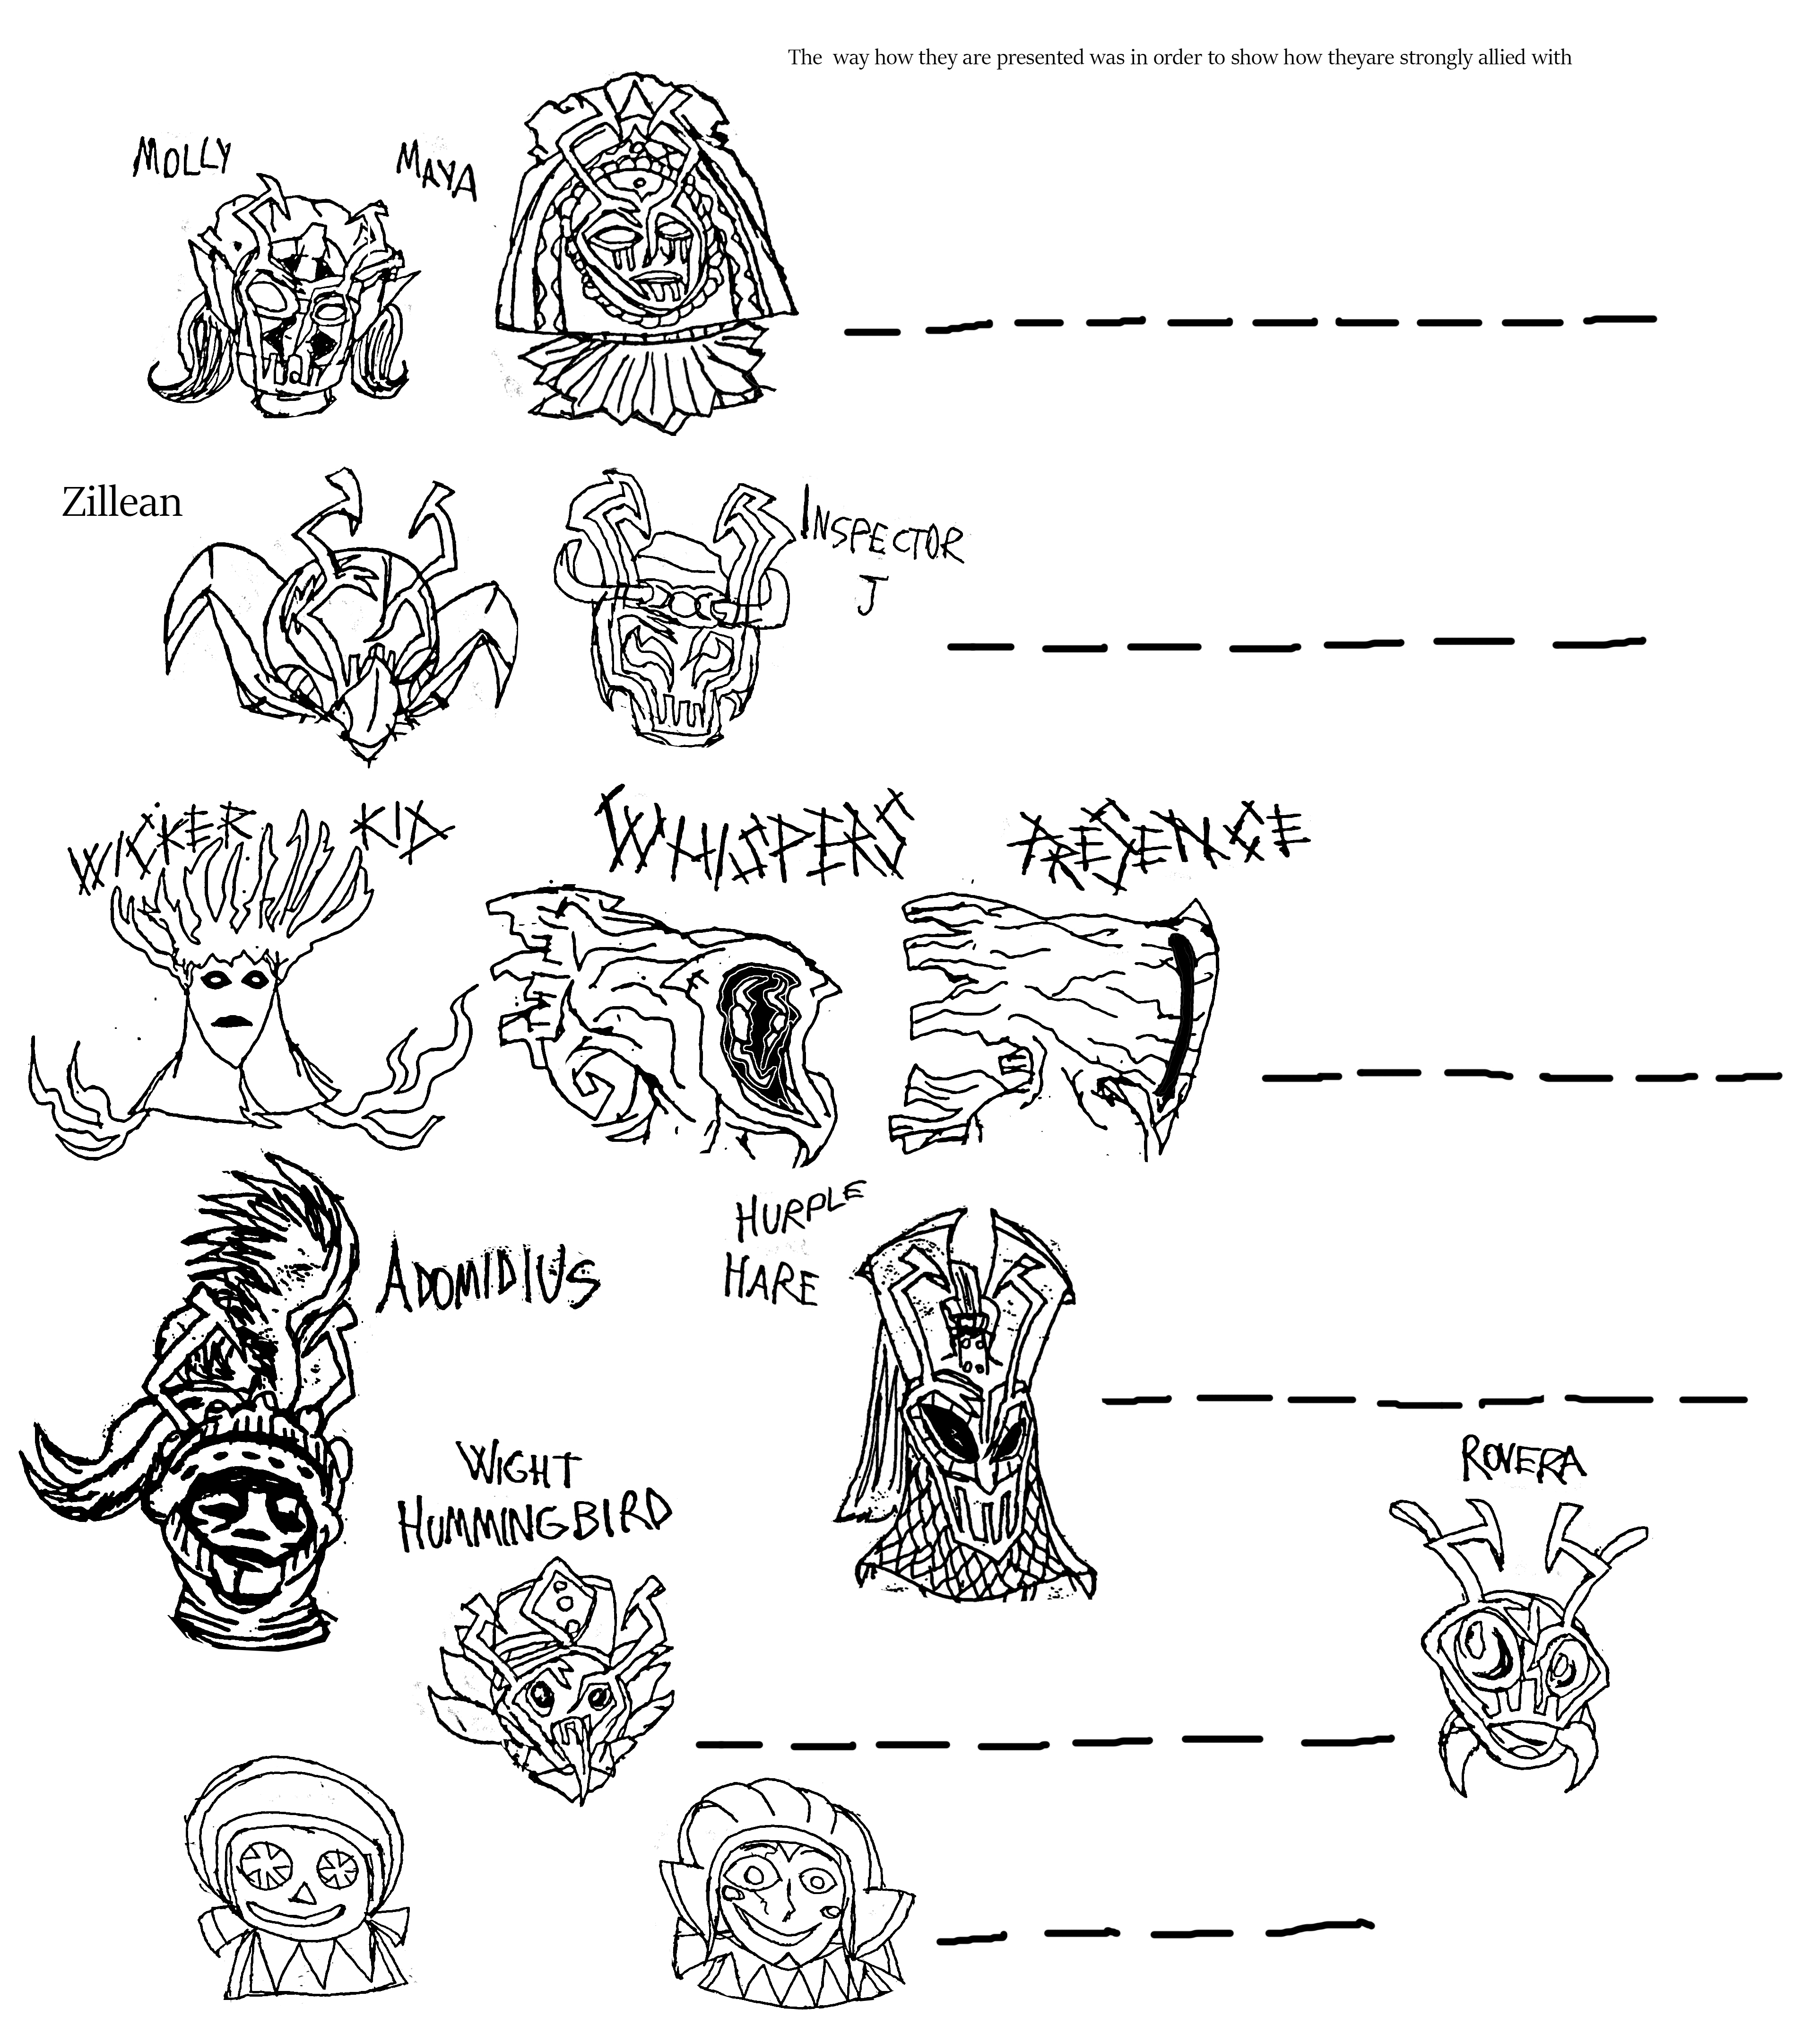 The  way how they are presented was in order to show how theyare strongly allied with
MOLLY
MAYA
Zillean
INSPECTOR
J
WICKER KID
WHISPERS
PRESENCE
ADOMIDIUS
HURPLE
HARE
WIGHT
HUMMINGBIRD
ROVERA